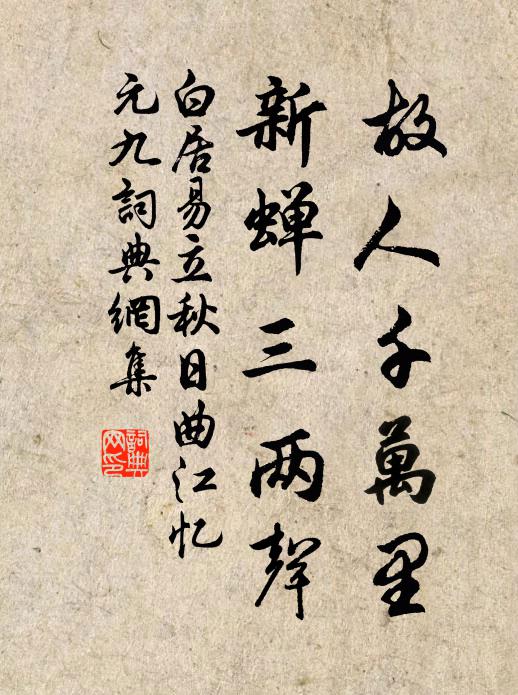 故人千萬里
新蝉三两聲
白居易立秋日曲江忆
元九詞典網集
詞典
网印